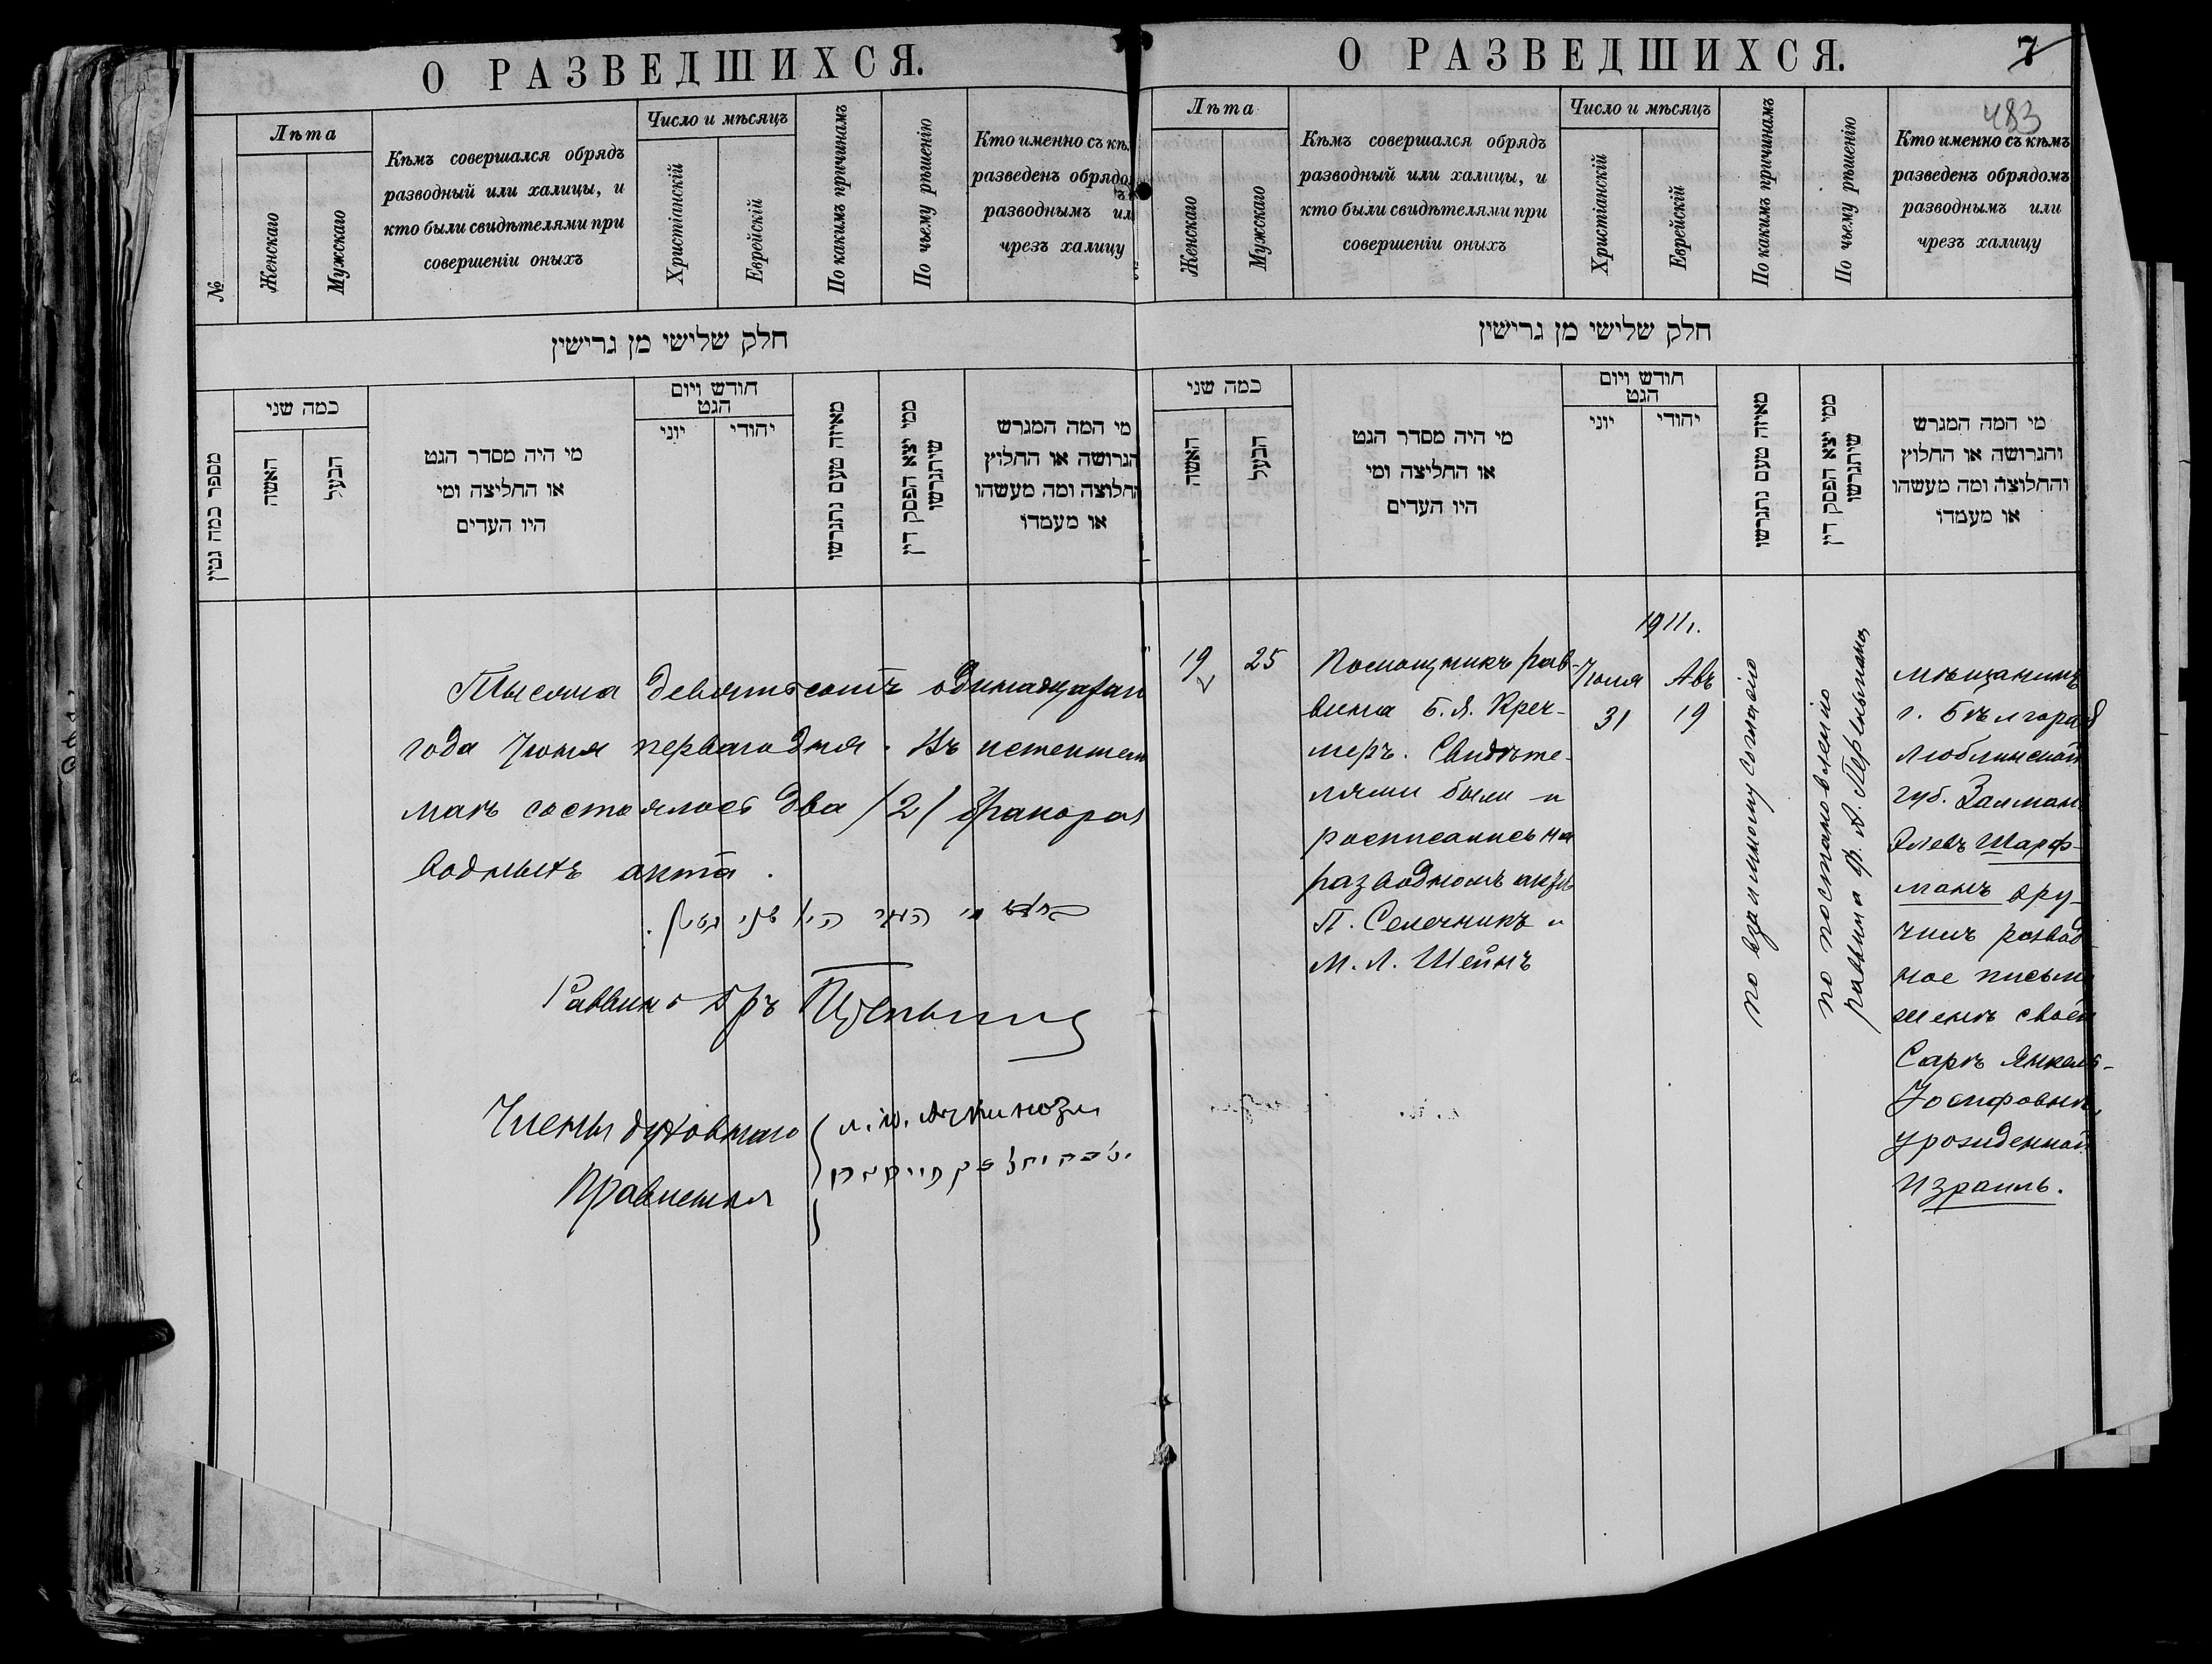 О РАЗВЕДШИХСЯ.
№
Лѣта
Женскаго
Мужскаго
Кѣмъ совершался обрядъ
разводный или халицы, и
кто были свидѣтелями при
совершеніи оныхъ
Число и мѣсяцъ
Христіанскій
Еврейскій
По какимъ причинамъ
По чьему рѣшенію
Кто именно съ кѣ
разведенъ обрядо
разводнымъ ил
чрезъ халицу
חלק שלישי מן גרישין
מספר כמה גטין
כמה שני
האשה
הבעל
מי היה מסדר הגט
או החליצה ומי
היו העדים
חודש ויום
הגט
יוני
יהודי
מאיזה טעם נתגרשו
ממי יצא הפסק דין
שיתגרשו
מי המה המגרש
הגרושה או החלוץ
החלוצה ומה מעשהו
או מעמדו
Тысяча девятьсотъ одинадцатаго
года Іюня перваго дня. Въ истекшемъ
маѣ состоялось два /2/ бракораз
водныхъ акта.
היו שני גטין.
Раввинъ Д-ръ
Члены духовнаго
Правленія
О РАЗВЕДШИХСЯ.
7
483
Лѣта
Женскаго
Мужскаго
Кѣмъ совершался обрядъ
разводный или халицы, и
кто были свидѣтелями при
совершеніи оныхъ
Число и мѣсяцъ
Христіанскій
Еврейскій
По какимъ причинамъ
По чьему рѣшенію
Кто именно съ кѣмъ
разведенъ обрядомъ
разводнымъ или
чрезъ халицу
חלק שלישי מן גרישין
כמה שני
האשה
הבעל
מי היה מסדר הגט
או החליצה ומי
היו העדים
חודש ויום
הגט
יוני
יהודי
מאיזה טעם נתגרשו
ממי יצא הפסק דין
שיתגרשו
מי המה המגרש
והגרושה או החלוץ
והחלוצה ומה מעשהו
או מעמדו
19
25
Помощникъ рав-
вина Б. Я. Креч-
меръ. Свидѣте-
лями были и
росписались на
разводномъ актѣ
П. Селечникъ и
М. Л. Шейнъ
1911 г.
Іюля
31
Авъ
19
по взаимному согласію
по постановленію
раввина Ф. А. Перельмана
мѣщанинъ
г. Бѣлгорай
Люблинской
губ. Залман
Элевъ Шарф-
манъ вру-
чилъ развод
ное письмо
женѣ своей
Сарѣ Янкель-
Іосифовнѣ,
урожденной
Израиль.